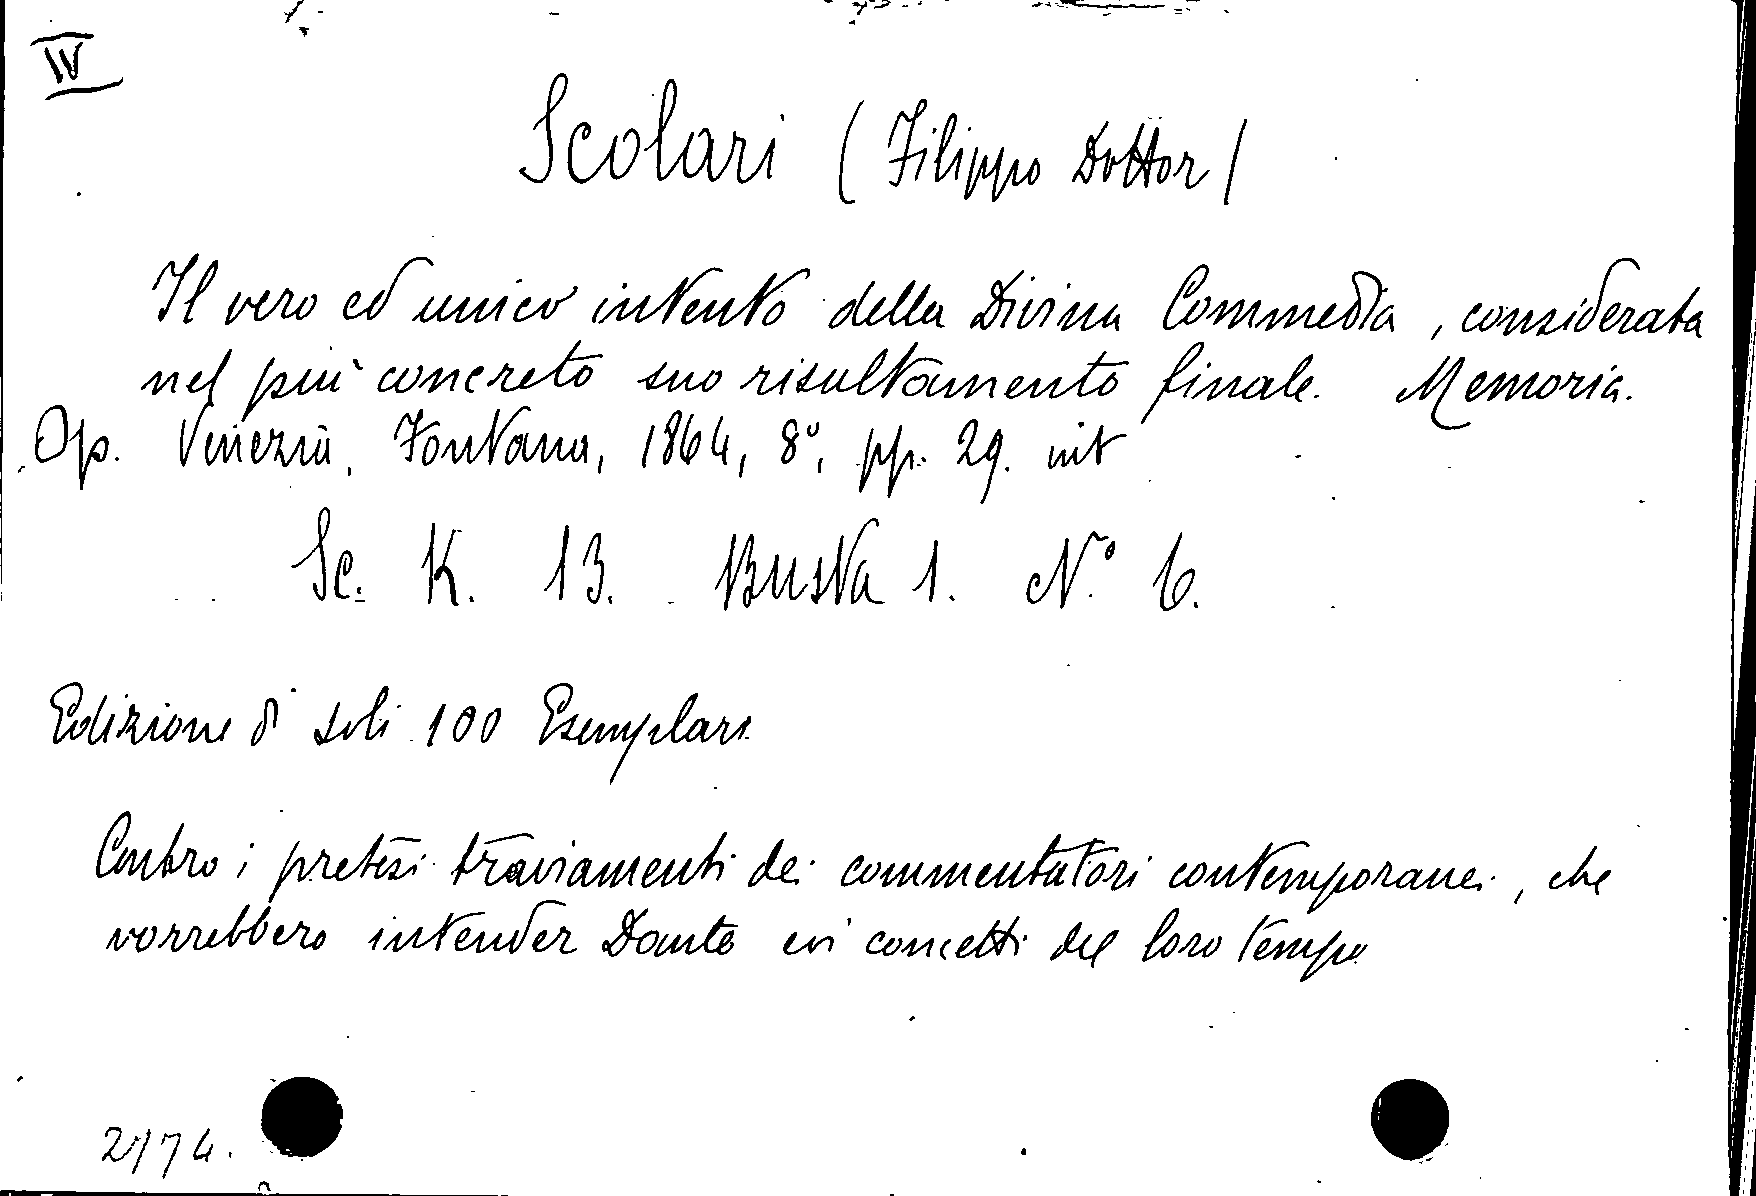 IV
Scolari (Filippo Dottor)
Il vero ed unico intento della Divina Commedia, considerata
nel più concreto suo risultamento finale. Memoria.
Op. Venezia, Fontana, 1864, 8°, pp. 29. int
Sc. K. 13. Busta 1. N° 6.
Edizione di soli 100 Esemplari
Contro i pretesi traviamenti dei commentatori contemporanei, che
vorrebbero intender Dante coi concetti del loro tempo
2774.